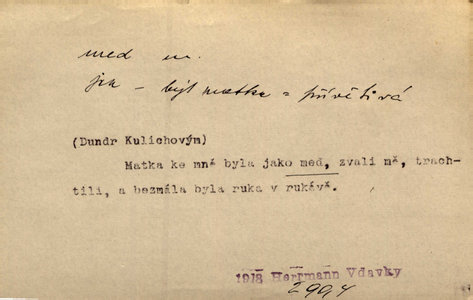 med m.
jak - být matka = přívětivá
(Dundr Kulichovým)
Matka ke mně byla jako med, zvali mě, trach-
tili, a bezmála byla ruka v rukávě.
1918 Herrmann Vdavky
299,4